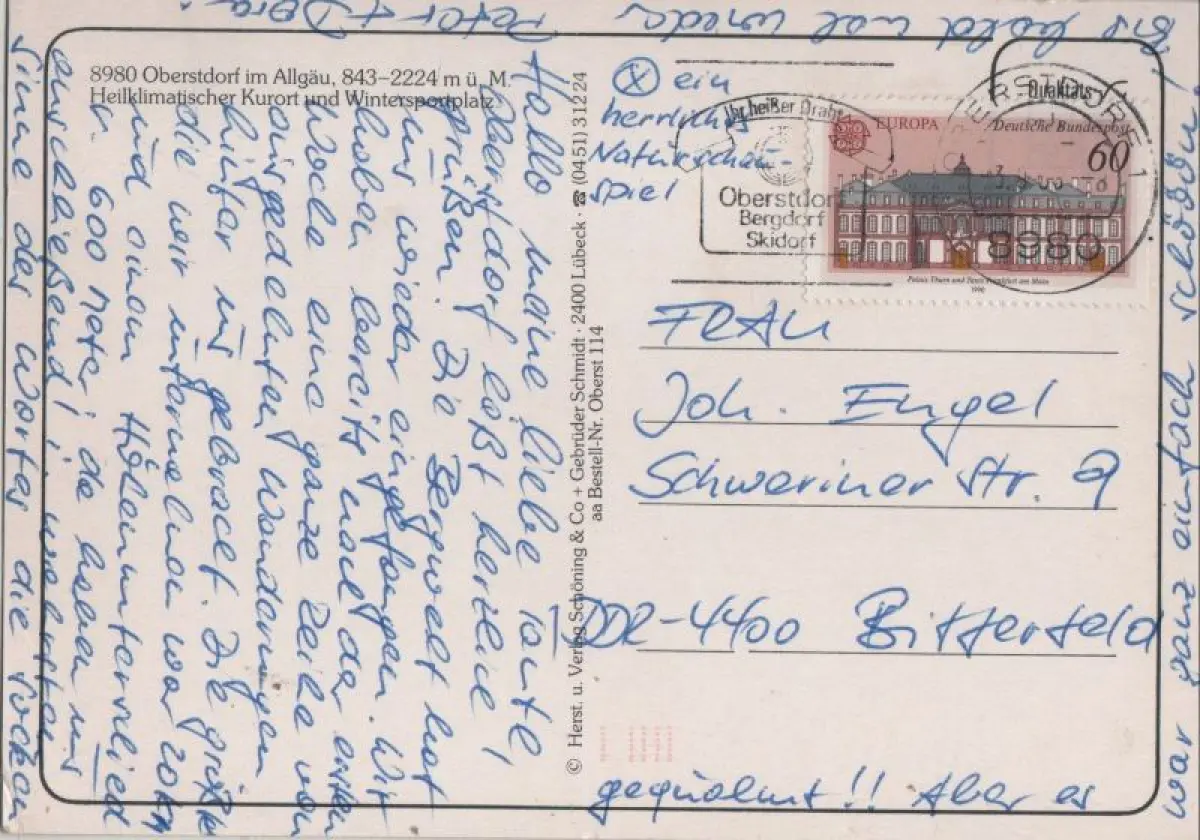 8980 Oberstdorf im Allgäu, 843–2224 m ü. M.
Heilklimatischer Kurort und Wintersportplatz
Hallo meine liebe Tante,
Oberstdorf läßt herzlich
grüßen. Die Bergwelt hat
uns wieder eingefangen. Wir
haben bereits nach der ersten
Woche eine ganze Reihe von
ausgedehnten Wanderungen
hinter uns gebracht. Die größte
die wir unternehmen war 20 km
und einem Höhenunterschied
v. 600 Meter; da haben uns
anschließend i. wahrsten
Sinne des Wortes die Socken
gequalmt!! Aber es
war ganz einfach schööön!
Bis bald mal wieder
Peter + Dora
ⓧ ein
herrliches
Naturschau-
spiel
© Herst. u. Verlag Schöning & Co + Gebrüder Schmidt · 2400 Lübeck · ☎ (04 51) 3 12 24
aa Bestell-Nr. Oberst 114
Ihr heißer Draht
Direktats-
Oberstdorf
Bergdorf
Skidorf
OBERSTDORF 1
8980
EUROPA
Deutsche Bundespost
60
Palais Thurn und Taxis Frankfurt am Main
1990
FRAU
Joh. Engel
Schweriner Str. 9
DDR-4400 Bitterfeld